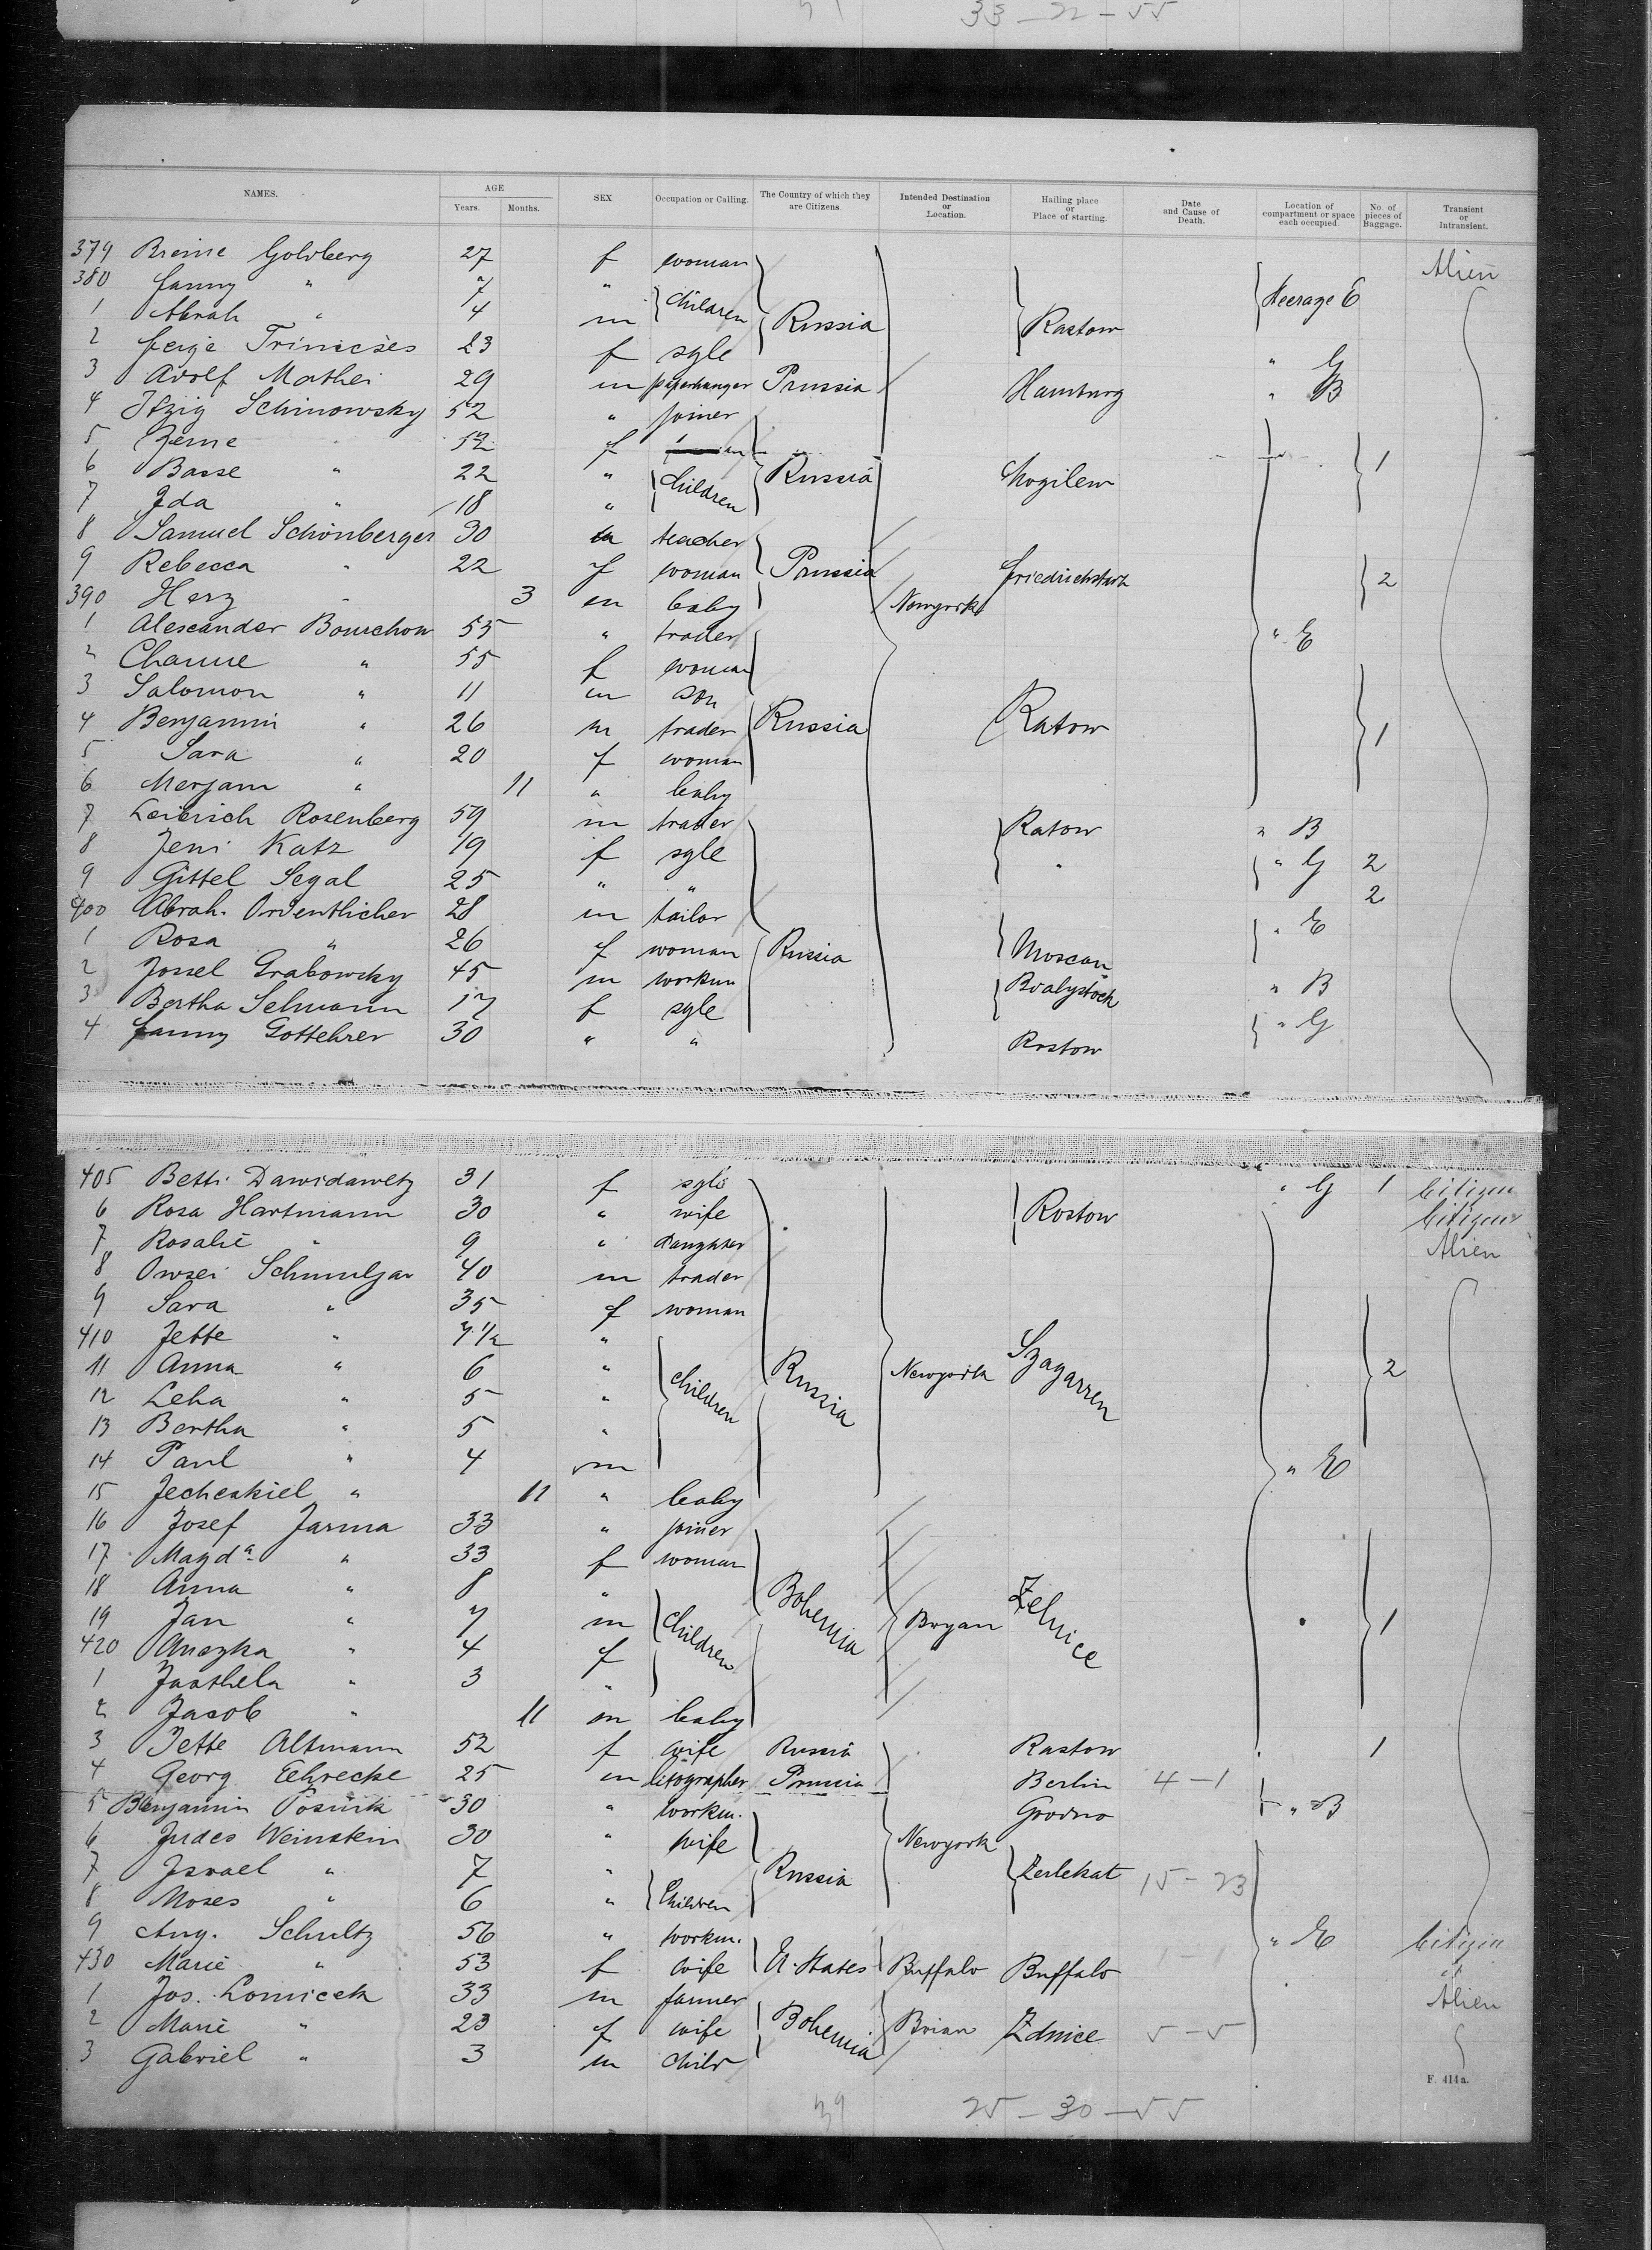 33 - 22 - 55
NAMES. AGE Years. Months. SEX Occupation or Calling. The Country of which they are Citizens. Intended Destination or Location. Hailing place or Place of starting. Date and Cause of Death. Location of compartment or space each occupied. No. of pieces of Baggage. Transient or Intransient.
379 Breine Goldberg 27 f woman Alien
380 Fanny " 7 " children Steerage E
1 Abrah " 4 m Russia Rastow
2 Feige 23 f sgle " G
3 Adolf Mathei 29 m paperhanger Prussia Hamburg " B
4 Itzig Schinowsky 52 " joiner
5 Zerne " 52 f
6 Basse " 22 " children Russia Mogilew 1
7 Ida " 18 "
8 Samuel Schönberger 30 m teacher
9 Rebecca " 22 f woman Prussia Friedrichstadt 2
390 Herz " 3 m baby Newyork
1 Alexander Bourchow 55 " trader " E
2 Channe " 55 f woman
3 Salomon " 11 m son
4 Benjamin " 26 m trader Russia Ratow 1
5 Sara " 20 f woman
6 Merjam " 11 " baby
7 Leibisch Rosenberg 59 m trader Ratow " B
8 Jeni Katz 19 f sgle " " G 2
9 Gittel Segal 25 " " 2
400 Abrah. Ordentlicher 28 m tailor " E
1 Rosa " 26 f woman Russia Moscau
2 Jossel Grabowsky 45 m workm Bialystock " B
3 Bertha Selmann 17 f sgle
4 Fanny Gottehrer 30 " " Rostow " G
405 Betti Dawidawetz 31 f sgle " G 1 Citizen
6 Rosa Hartmann 30 " wife Rostow Citizen
7 Rosalie " 9 " daughter Alien
8 Owsei Schmuljan 40 m trader
9 Sara " 35 f woman
410 Jette " 7 1/2 "
11 Anna " 6 " children Russia Newyork Szagarren 2
12 Leha " 5 "
13 Bertha " 5 "
14 Paul " 4 m " E
15 Jecheskiel " 11 " baby
16 Josef Jarma 33 " joiner
17 Magda " 33 f woman
18 Anna " 8 "
19 Jan " 7 m children Bohemia Bryan Zelnice 1
420 Anezka " 4 f
1 " 3 "
2 Jacob " 11 m baby
3 Jette Altmann 52 f wife Russia Rastow 1
4 Georg Gehrecke 25 m litographer Prussia Berlin 4 - 1
5 Benjamin Posnik 30 " workm. Grodno " B
6 Judes Weinstein 30 " wife Newyork
7 Israel " 7 " Russia Zerlekat 15 - 23
8 Moses " 6 " Children
9 Aug. Schultz 56 " workm. " E Citizen
430 Marie " 53 f wife U. States Buffalo Buffalo
1 Jos. Lomicek 33 m farmer Alien
2 Marie " 23 f wife Bohemia Brian Zdnice 5 - 5
3 Gabriel " 3 m child
F. 414a.
39 25 - 30 - 55